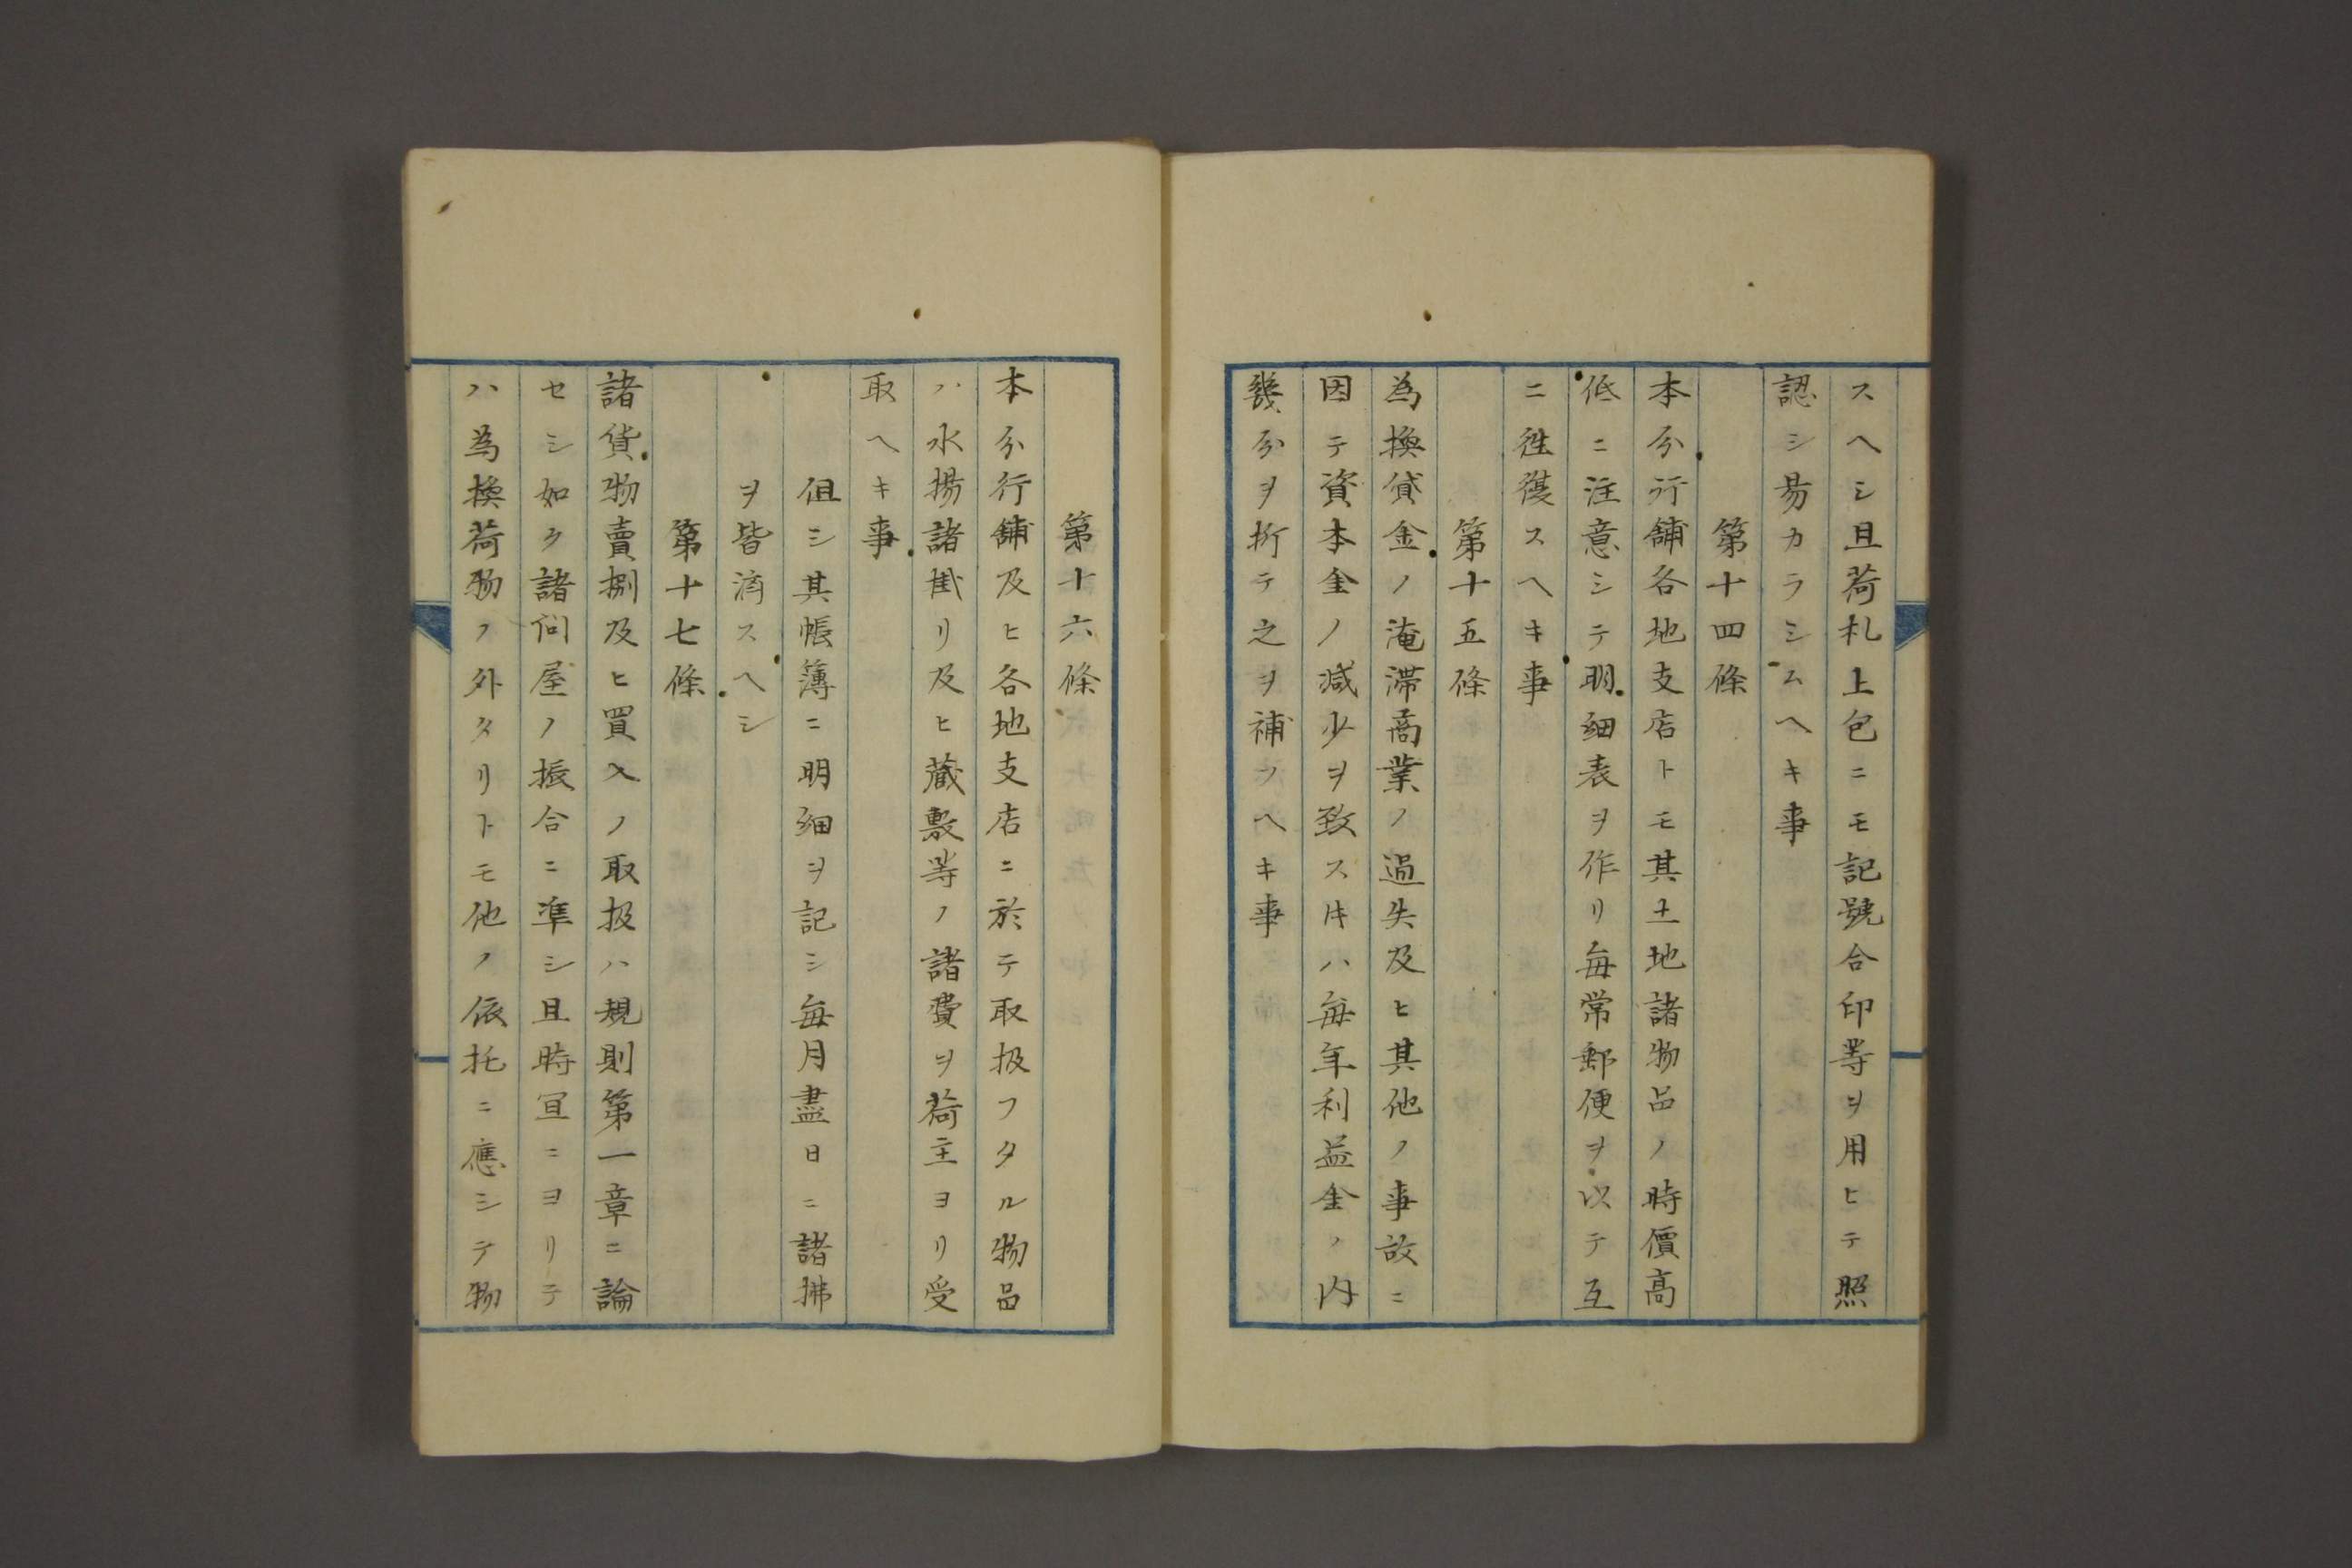 スヘシ且荷札上包ニモ記號合印等ヲ用ヒテ照
認シ易カラシムヘキ事
第十四條
本分行舗各地支店トモ其土地諸物品ノ時價高
低ニ注意シテ明細表ヲ作リ毎常郵便ヲ以テ互
ニ徃復スヘキ事
第十五條
為換貸金ノ淹滞商業ノ過失及ヒ其他ノ事故ニ
因テ資本金ノ減少ヲ致ス𪜈ハ毎年利益金ノ内
幾分ヲ折テ之ヲ補フヘキ事
第十六條
本分行舗及ヒ各地支店ニ於テ取扱フタル物品
ハ水揚諸掛リ及ヒ藏敷等ノ諸費ヲ荷主ヨリ受
取ヘキ事
但シ其帳簿ニ明細ヲ記シ毎月盡日ニ諸拂
ヲ皆済スヘシ
第十七條
諸貨物賣捌及ヒ買入ノ取扱ハ規則第一章ニ論
セシ如ク諸问屋ノ振合ニ準シ且時宜ニヨリテ
ハ為換荷物ノ外タリトモ他ノ依托ニ應シテ物